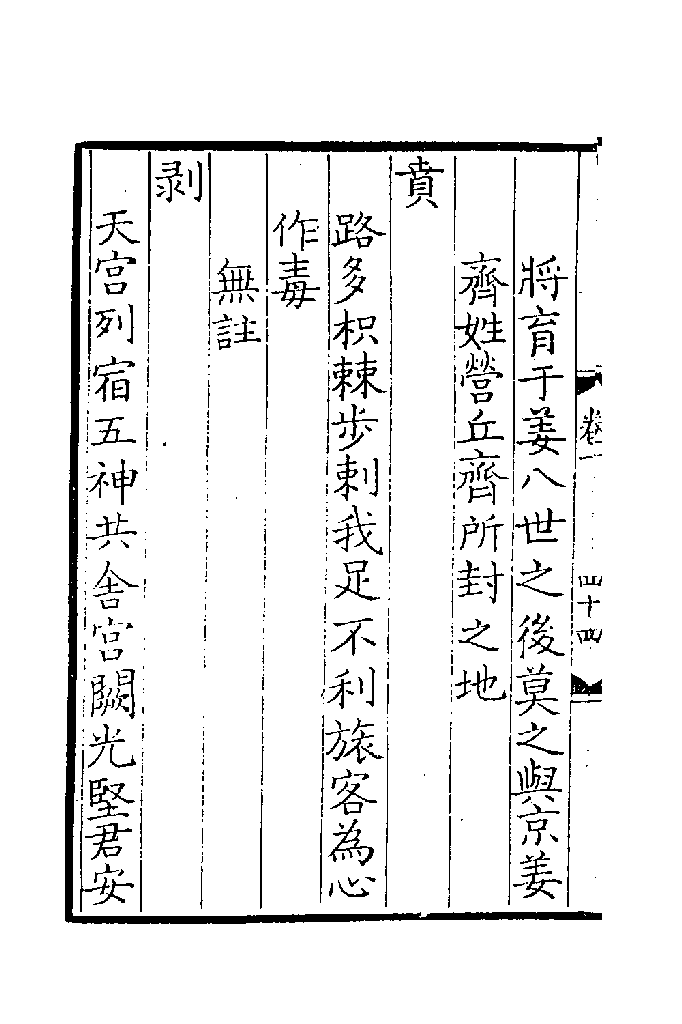 將育于姜八世之後莫之與京姜
齊姓營丘齊所封之地
賁
路多枳棘步刺我足不利旅客為心
作毒
無註
剥
天宮列宿五神共舎宮闕光堅君安
卷一
四十四